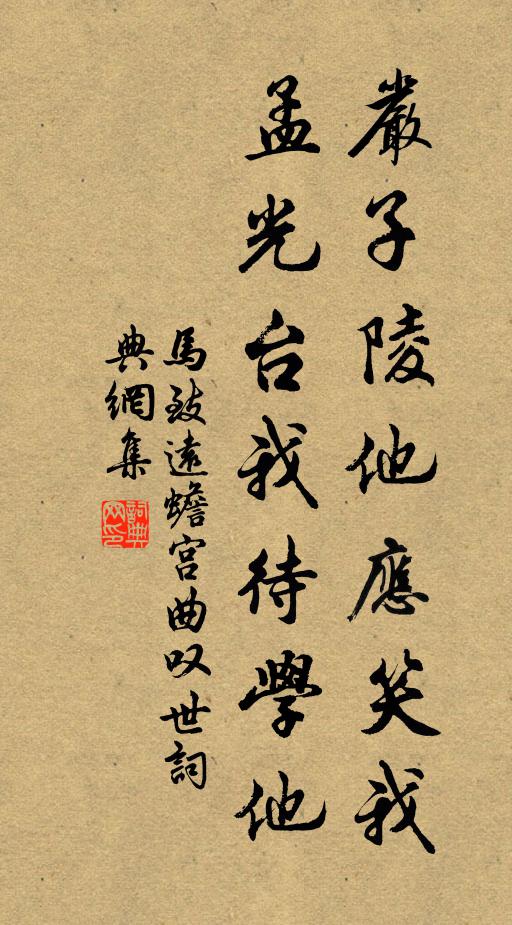 嚴子陵他應笑我
孟光台我待學他
馬致遠蟾宮曲叹世詞
典網集
詞典
网印